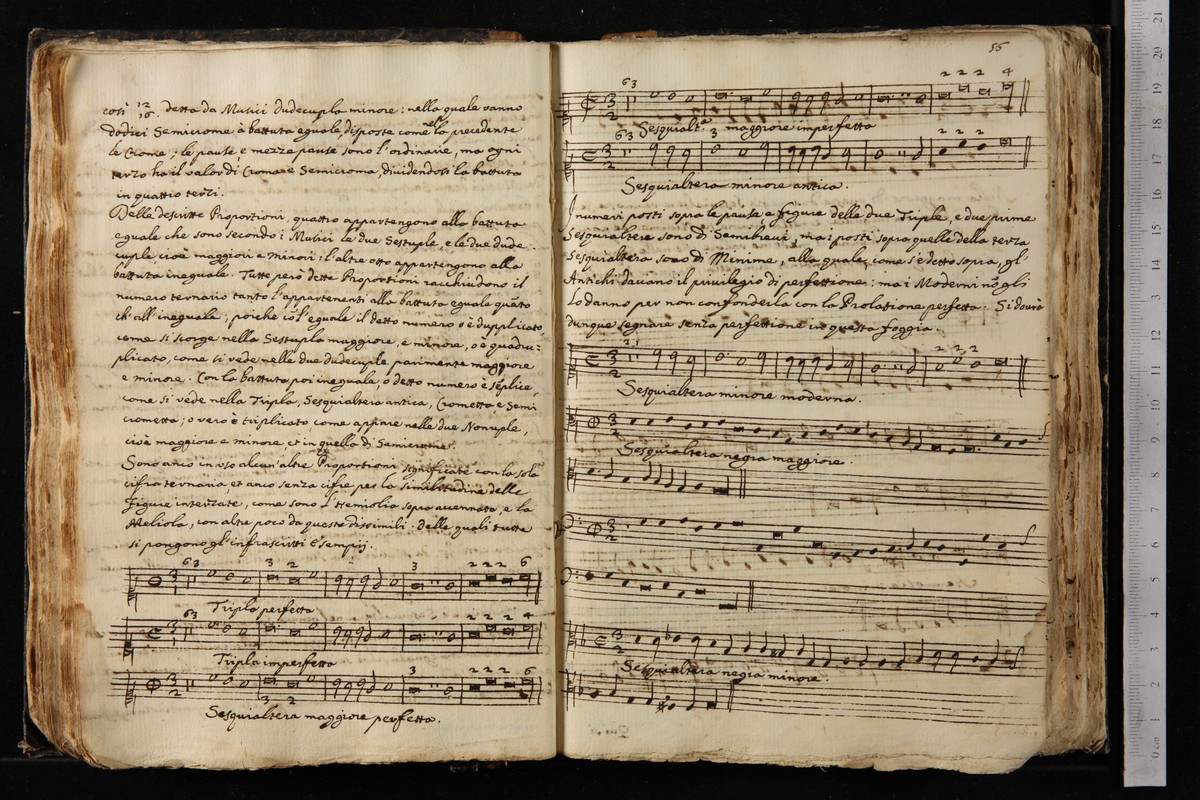 così 12/16. detta da Musici Dudecupla minore: nella quale vanno
dodici Semicrome à battuta eguale disposte come nela precedente
le Crome; le pause, e mezze pause sono l'ordinarie, ma ogni
terzo ha il valor di Croma e Semicroma, dividendosi la battuta
in quattro terzi.
Delle descritte Proportioni, quattro appartengono alla battuta
eguale che sono secondo i Musici le due Sestuple, e le due dude-
cuple cioè maggiori e minori: l'altre otto appartengono alla
battuta ineguale. Tutte però dette Proportioni racchiudono il
numero ternario tanto l'appartenenti alla battuta eguale quāto
ch'all'ineguale; poiche cō l'eguale il detto numero o è dupplicato,
come si scorge nella Sestupla maggiore, e minore, o è quadru-
plicato, come si vede nelle due dudecuple parimente maggiore
e minore. Con la battuta poi ineguale, o detto numero è sēplice,
come si vede nella Tripla, Sesquialtera antica, Crometta e Semi
crometta; o vero è triplicato, come appare nelle due Nonuple,
cioè maggiore e minore et in quella di Semicrome.
Sono anco in uso alcun'altre Proportioni significate con la sola
cifra ternaria, et anco senza cifre per la similitudine delle
figure interzate, come sono l'Hemiolia sopra accennata, e la
Meliola, con altre poco da queste dissimili: delle quali tutte
si pongono gl'infrascritti Essempij.
63 3 2 3 2 2 2 6
Tripla perfetta
63 2 2 2 4
Tripla imperfetta
3 2 2 2 6
3 2
Sesquialtera maggiore perfetta.
55
63 2 2 2 4
Sesquialt.a maggiore imperfetta
63 3 2 2 2
Sesquialtera minore antica.
I numeri posti sopra le pause, e figure delle due Triple, e due prime
Sesquialtere sono di Semibrevi, ma i posti sopra quelle della terza
Sesquialtera sono di Minime, alla quale, come s'è detto sopra, gl'
Antichi davano il privilegio di perfettione: ma i Moderni nō gli
lo danno per non confonderla con la Prolatione perfetta. Si dovrà
dunque segnare senza perfettione in questa foggia.
2 2 2
Sesquialtera minore moderna.
Sesquialtera negra maggiore.
Sesquialtera negra minore.